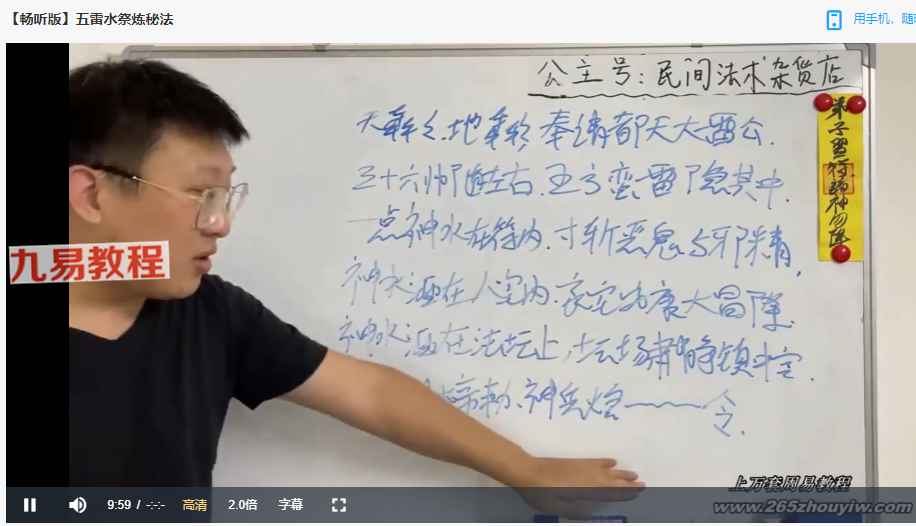 【畅听版】五雷水祭炼秘法
用手机，随
公主号：民间法术杂货店
奉请都天大雷公
三十六帅随左右，五方蛮雷
一点神水在符内，寸斩恶鬼与邪精，
神水洒在人宅内，家宅安康大昌隆
神水洒在法坛上，坛场肃静镇
神兵火急 令
弟子
九易教程
9:59 / -:-:-
高清
2.0倍
字幕
上万套周易教程
www.265zhouyiw.com